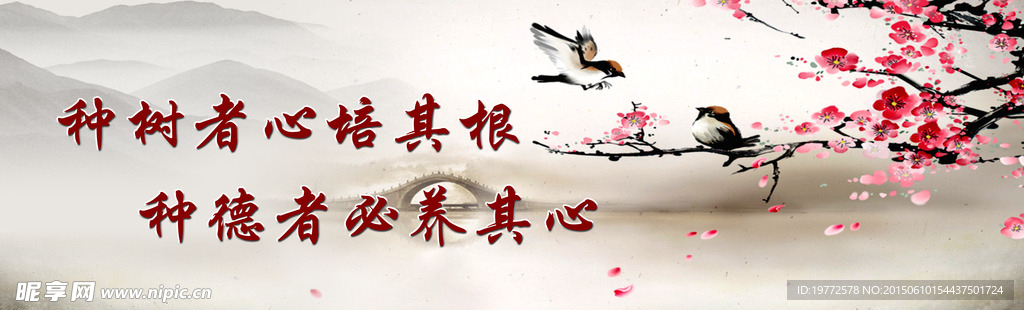 种树者心培其根
种德者必养其心
昵享网 www.nipic.cn
ID:19772578 NO:20150610154437501724